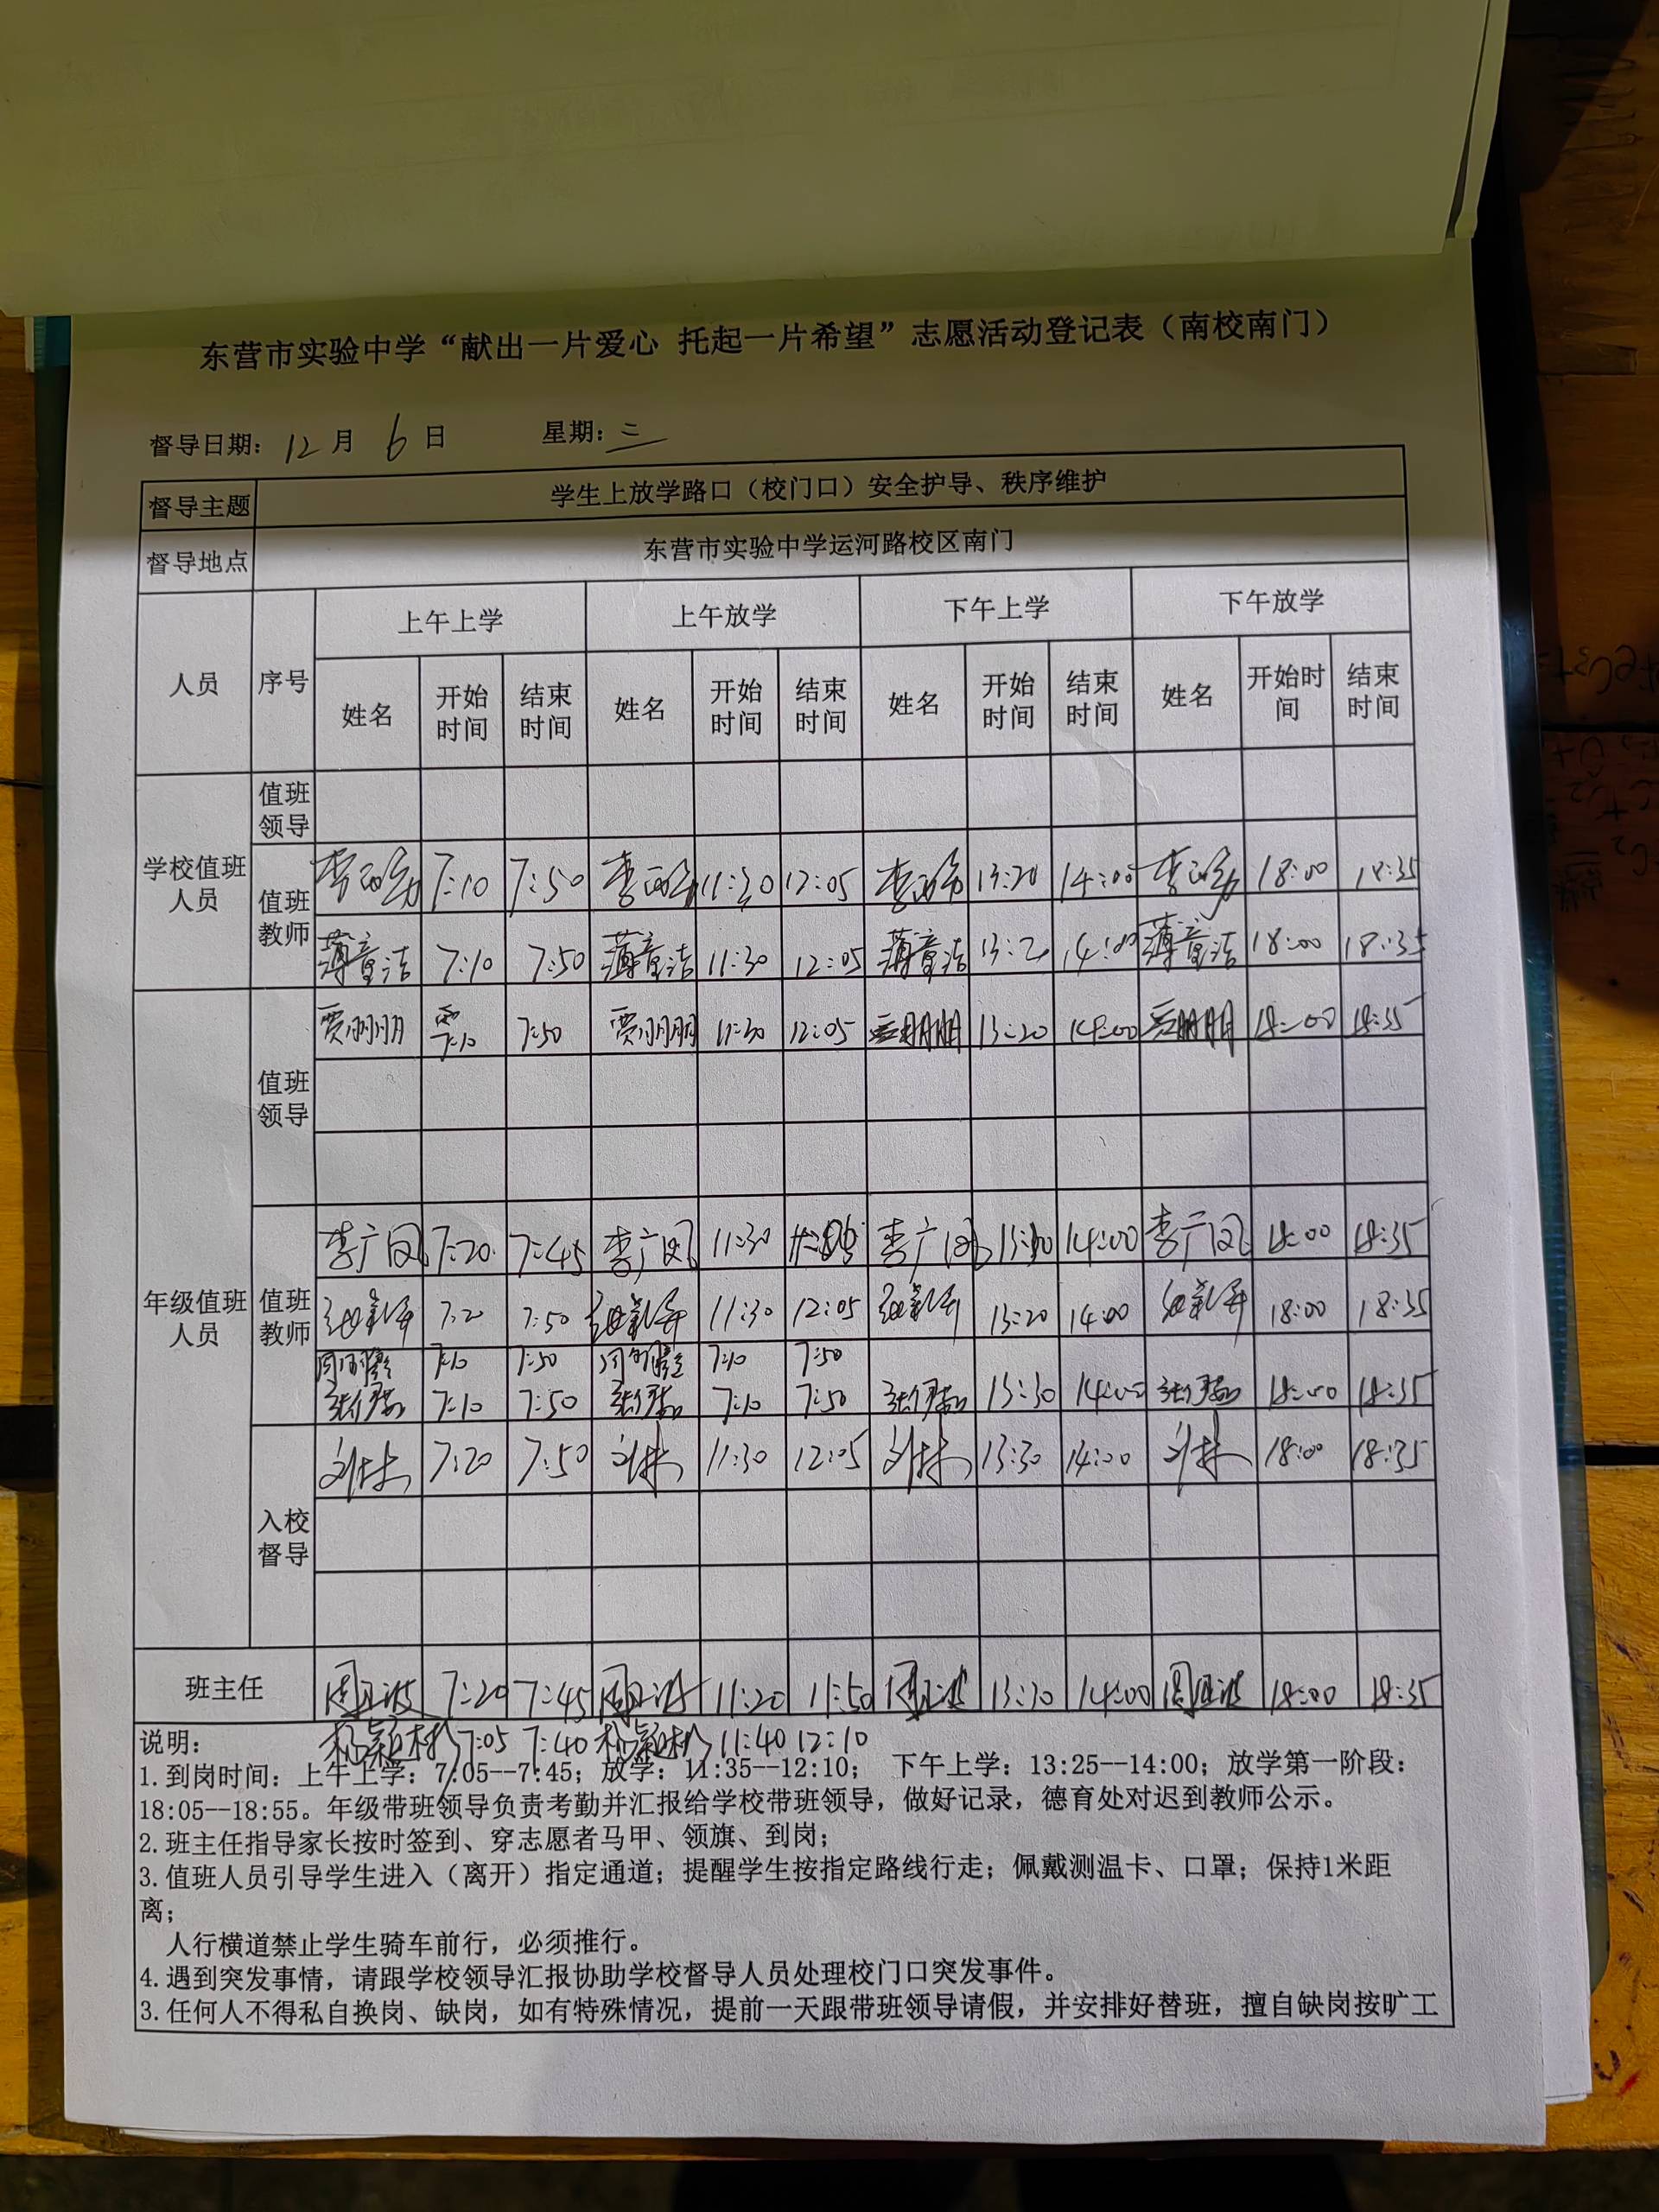 东营市实验中学“献出一片爱心 托起一片希望”志愿活动登记表（南校南门）
督导日期：12月 6日 星期：三
督导主题 学生上放学路口（校门口）安全护导、秩序维护
督导地点 东营市实验中学运河路校区南门
人员 序号 上午上学 上午放学 下午上学 下午放学
姓名 开始时间 结束时间 姓名 开始时间 结束时间 姓名 开始时间 结束时间 姓名 开始时间 结束时间
学校值班人员 值班领导
值班教师 7:10 7:50 11:30 12:05 13:20 14:00 18:00 18:35
薄童洁 7:10 7:50 薄童洁 11:30 12:05 薄童洁 13:20 14:00 薄童洁 18:00 18:35
年级值班人员 值班领导 贾朋朋 7:10 7:50 贾朋朋 11:30 12:05 贾朋朋 13:20 14:00 贾朋朋 18:00 18:35
值班教师 李广凤 7:20 7:45 李广凤 11:30 李广凤 14:00 李广凤 18:00 18:35
7:20 7:50 11:30 12:05 13:20 14:00 18:00 18:35
7:10 7:50 7:10 7:50
7:10 7:50 7:10 7:50 13:30 14:00 18:00 18:35
入校督导 刘林 7:20 7:50 刘林 11:30 12:05 刘林 13:30 14:00 刘林 18:00 18:35
班主任 7:20 7:45 11:20 11:50 14:00 18:00 18:35
杨颖彬 7:05 7:40 杨颖彬 11:40 12:10
说明：
1.到岗时间：上午上学：7:05--7:45；放学：11:35--12:10； 下午上学：13:25--14:00；放学第一阶段：
18:05--18:55。年级带班领导负责考勤并汇报给学校带班领导，做好记录，德育处对迟到教师公示。
2.班主任指导家长按时签到、穿志愿者马甲、领旗、到岗；
3.值班人员引导学生进入（离开）指定通道；提醒学生按指定路线行走；佩戴测温卡、口罩；保持1米距
离；
人行横道禁止学生骑车前行，必须推行。
4.遇到突发事情，请跟学校领导汇报协助学校督导人员处理校门口突发事件。
3.任何人不得私自换岗、缺岗，如有特殊情况，提前一天跟带班领导请假，并安排好替班，擅自缺岗按旷工